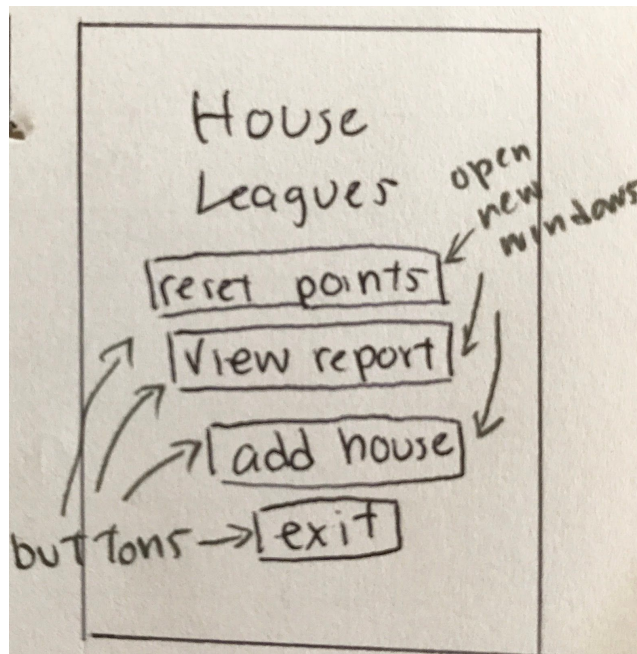 House
Leagues
open
new
windows
reset points
view report
add house
buttons
exit